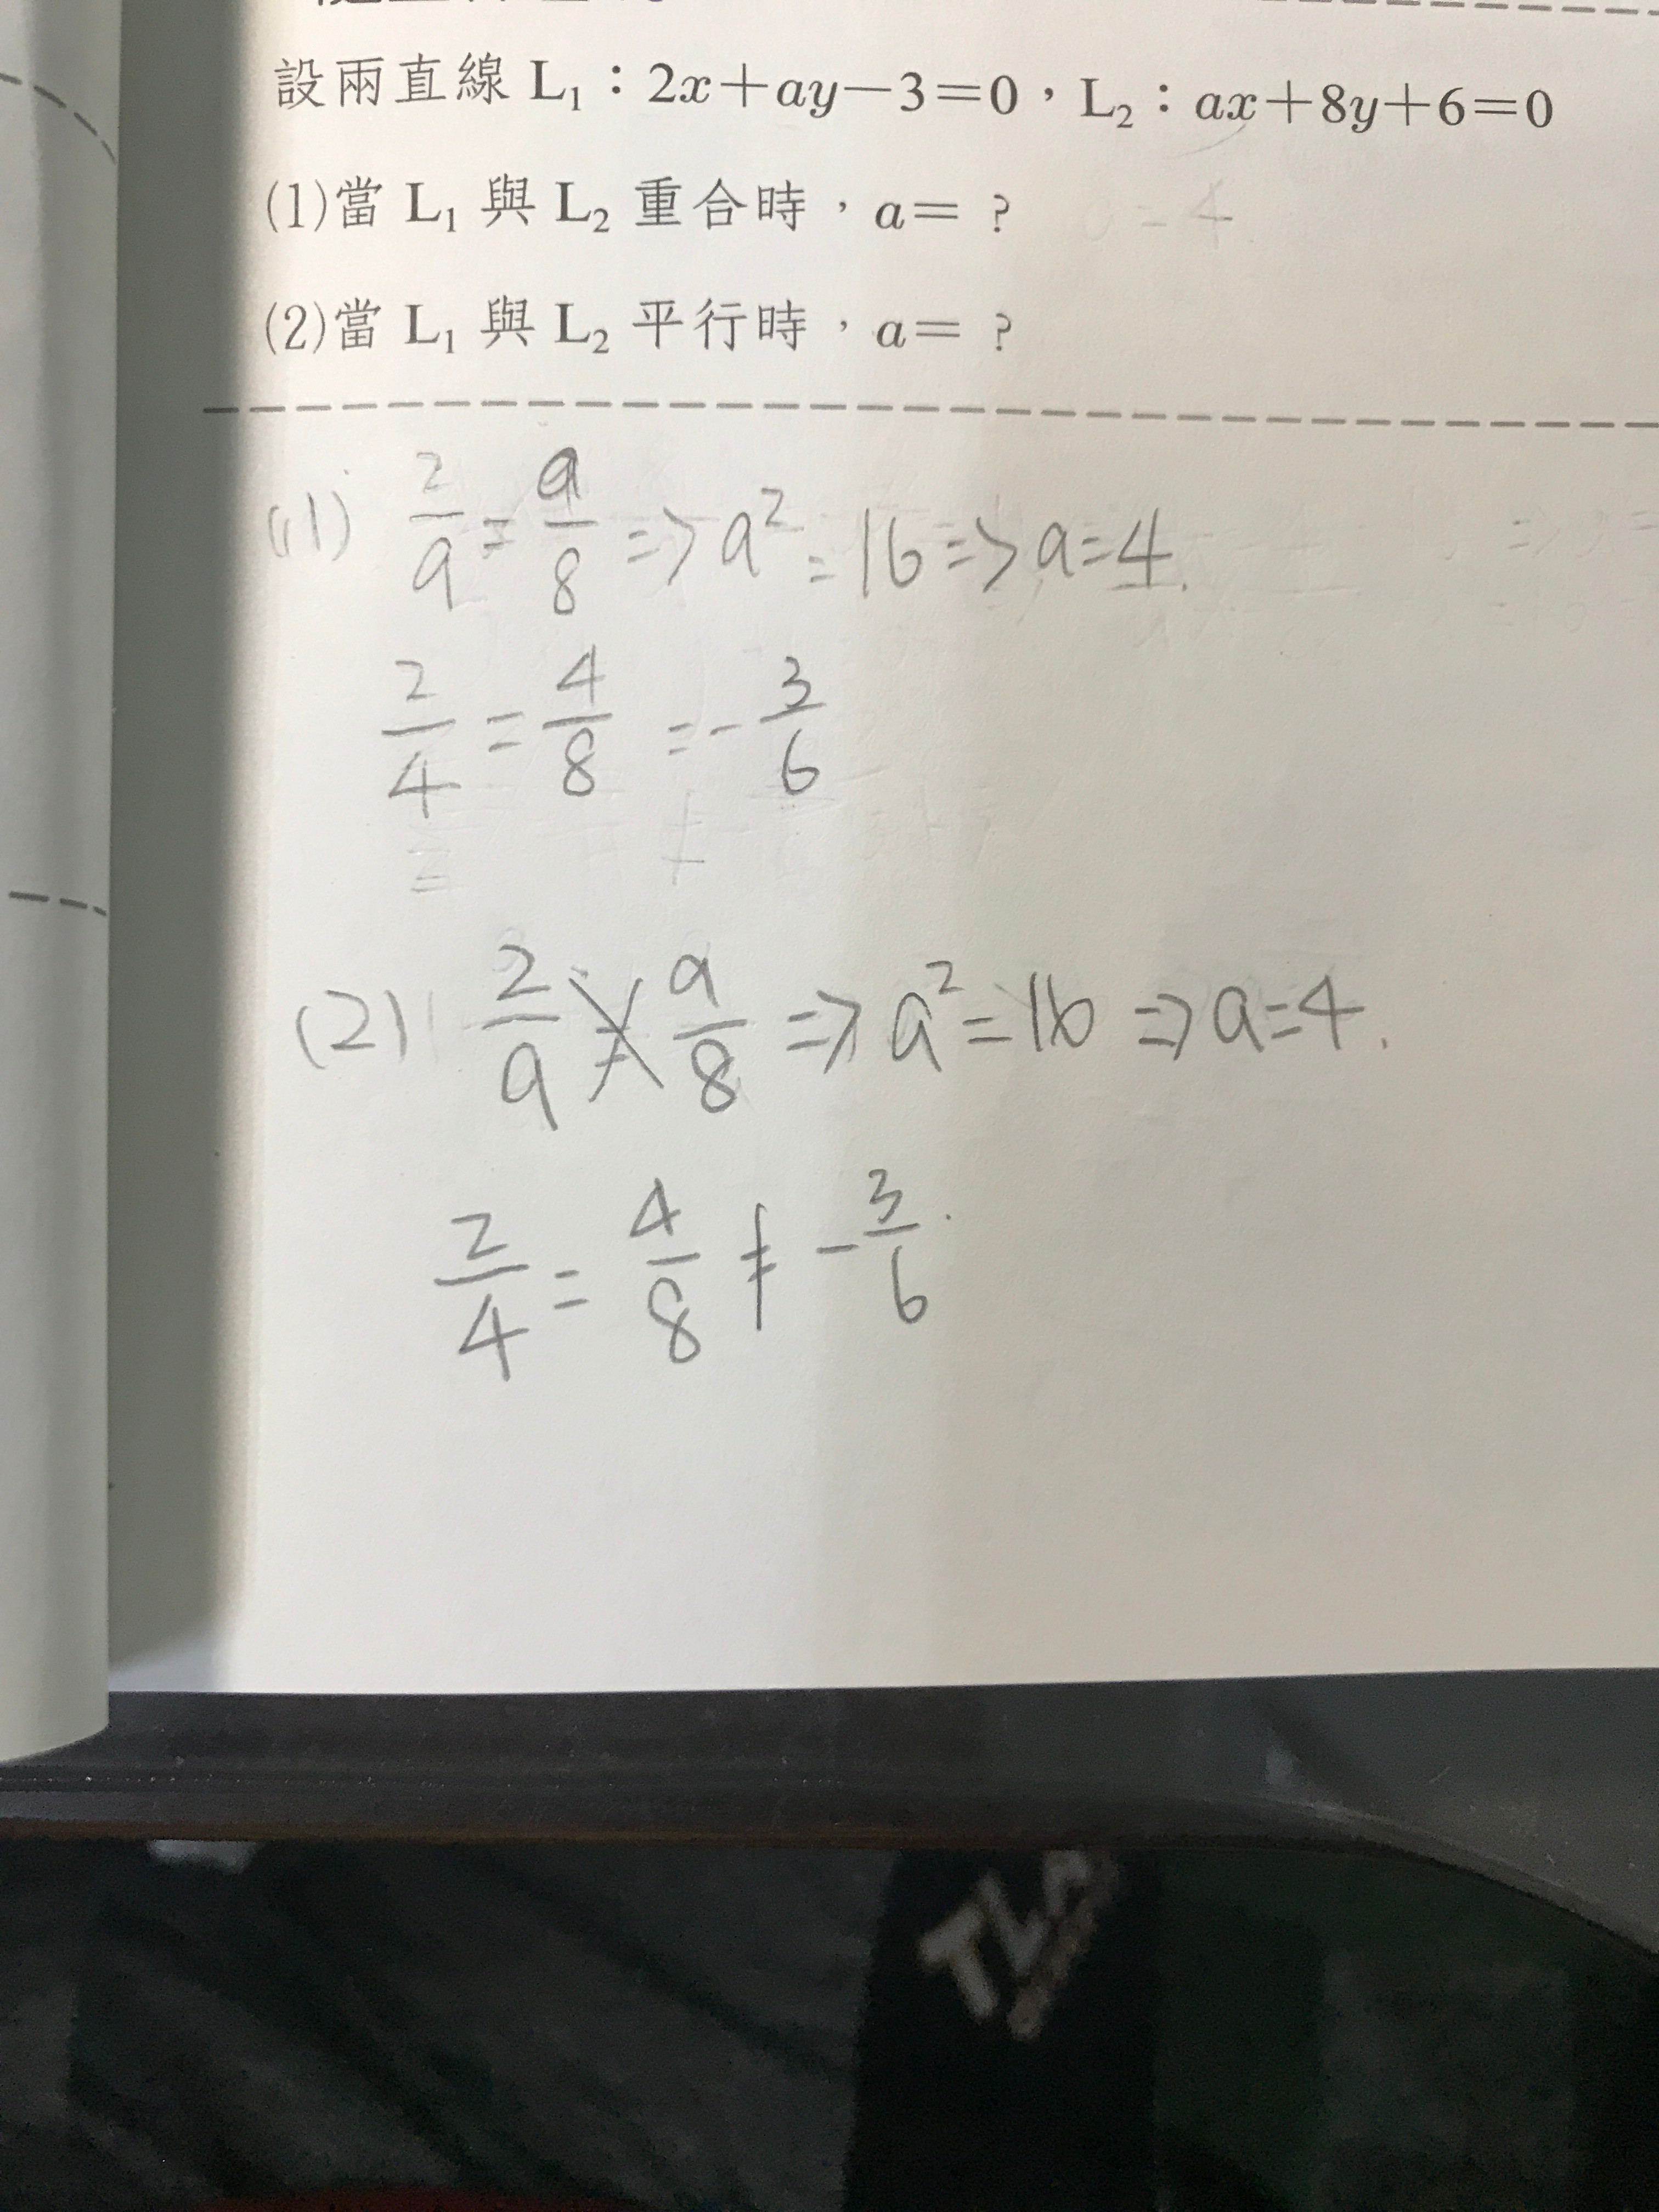 設兩直線 L₁：2x＋ay－3＝0，L₂：ax＋8y＋6＝0
(1)當 L₁ 與 L₂ 重合時，a＝？ a=4
(2)當 L₁ 與 L₂ 平行時，a＝？
(1) 2/a = a/8 => a² = 16 => a=4.
2/4 = 4/8 = -3/6
(2) 2/a = a/8 => a² = 16 => a=4.
2/4 = 4/8 ≠ -3/6